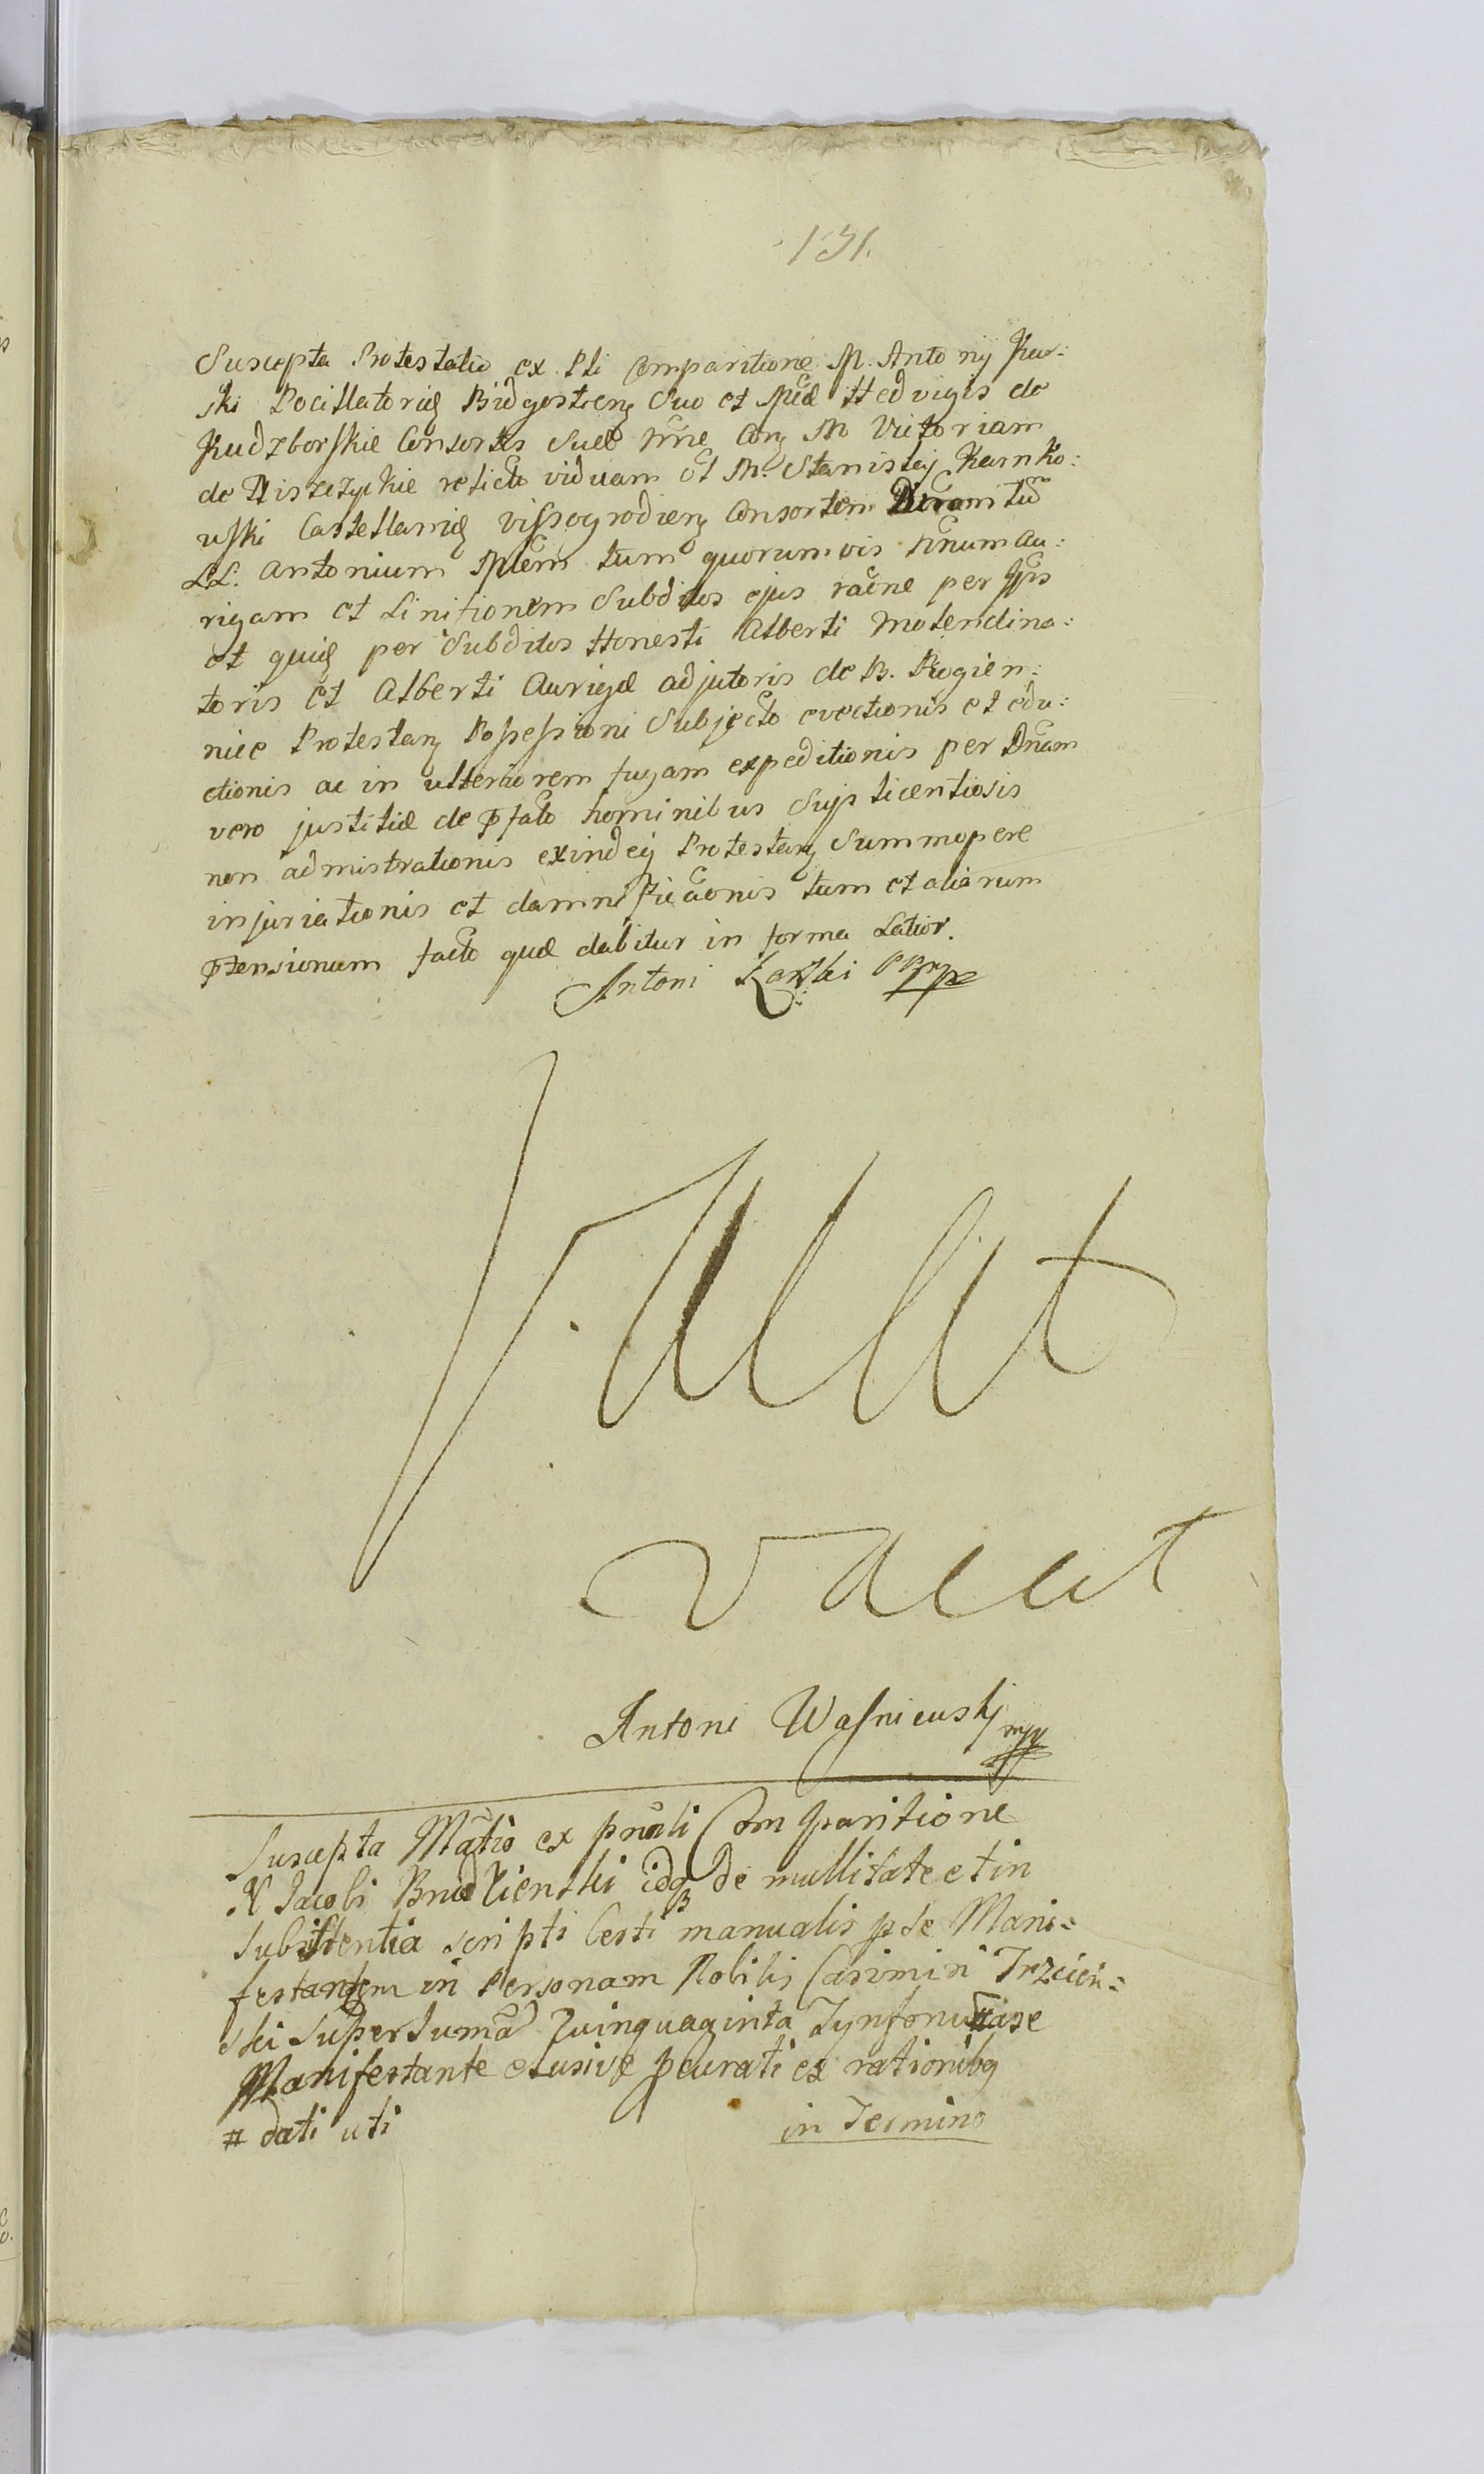 131.
Suscepta Protestatio ex Pli Comparitione M. Antonij Kar:
ski Pocillatoris Bidgostien Suo et Mcæ Hedvigis de
Kudzborskie Consortis Suæ nne Con M Victoriam
de Piszczykie relictã viduam et M. Stanislaj Karnko:
wski Castellanis vissogrodien Consortem Dnam tũ
LL. Antonium Mlem tum quorumvis hnum au:
rigam et Linitionem Subditos ejus raõne per Ipõs
et quis per Subditos Honesti Alberti Molendina:
toris et Alberti Aurigæ adjutoris de B. Rogien:
nice Protestan Possessioni Subjecto evectionis et edu:
ctionis ac in ulteriorem fugam expeditionis per Dnam
vero justitiæ de ptato hominibus Sujs licentiosis
non admistrationis exindeq Protestan Summopere
injuriationis et damnificaõnis tum et aliarum
ptensionum facto quæ dabitur in forma Latior.
Antoni Karski PBmp
Vacat
vacat
Antoni Wasniewskj mpp
Suscepta Mãtio ex pnãli Comparitione
N Jacobi Brudzienski idq de nullitate et in
subsistentia scripti Certi manualis p se Mani=
festantem in Personam Nobilis Casimiri Trzcien=
ski Super Sumã Quinquaginta Tynfonũ # a se
Manifestante elusive pcurati ex rationibq
# dati uti
in Termino